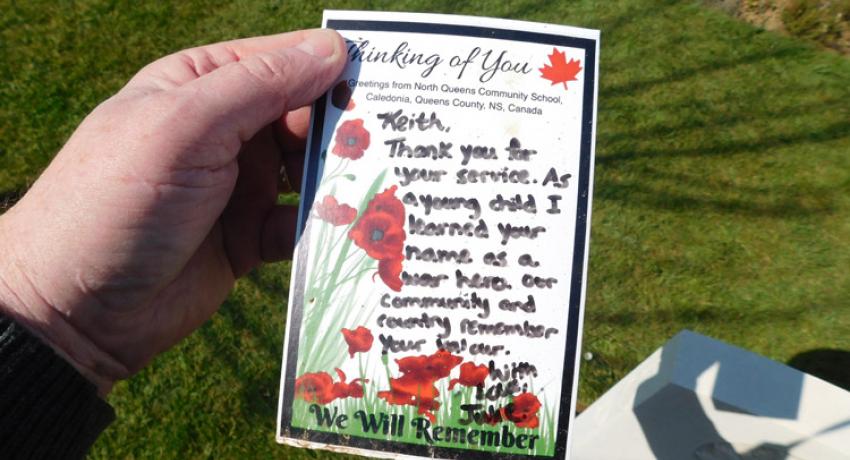 Thinking of You
Greetings from North Queens Community School,
Caledonia, Queens County, NS, Canada
Keith,
Thank you for
your service. As
a young child I
learned your
name as a
war hero. Our
community and
country remember
your valour.
With
love,
We Will Remember